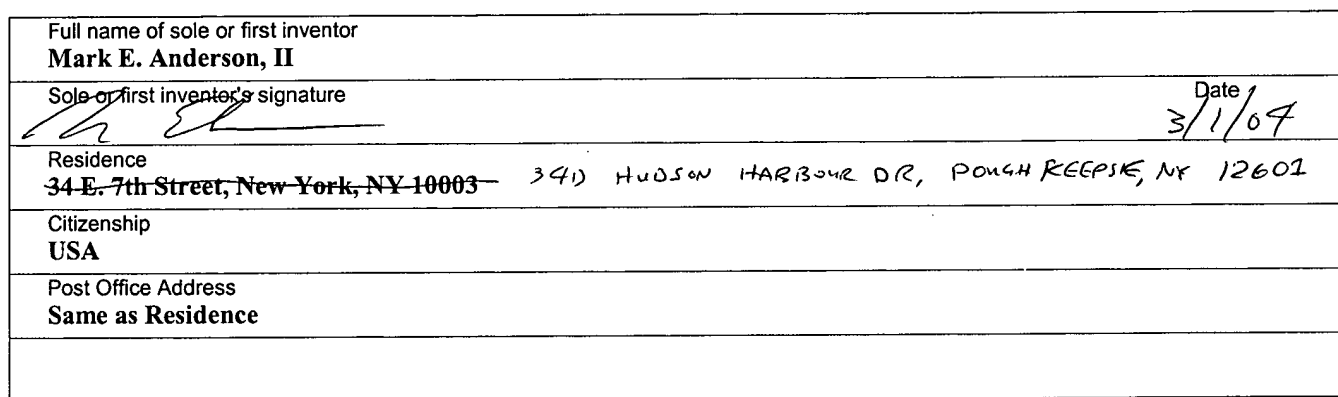 Full name of sole or first inventor
Mark E. Anderson, II
Sole or first inventor's signature Date
3/1/04
Residence
34 E. 7th Street, New York, NY 10003 34D HUDSON HARBOUR DR, POUGHKEEPSIE, NY 12601
Citizenship
USA
Post Office Address
Same as Residence